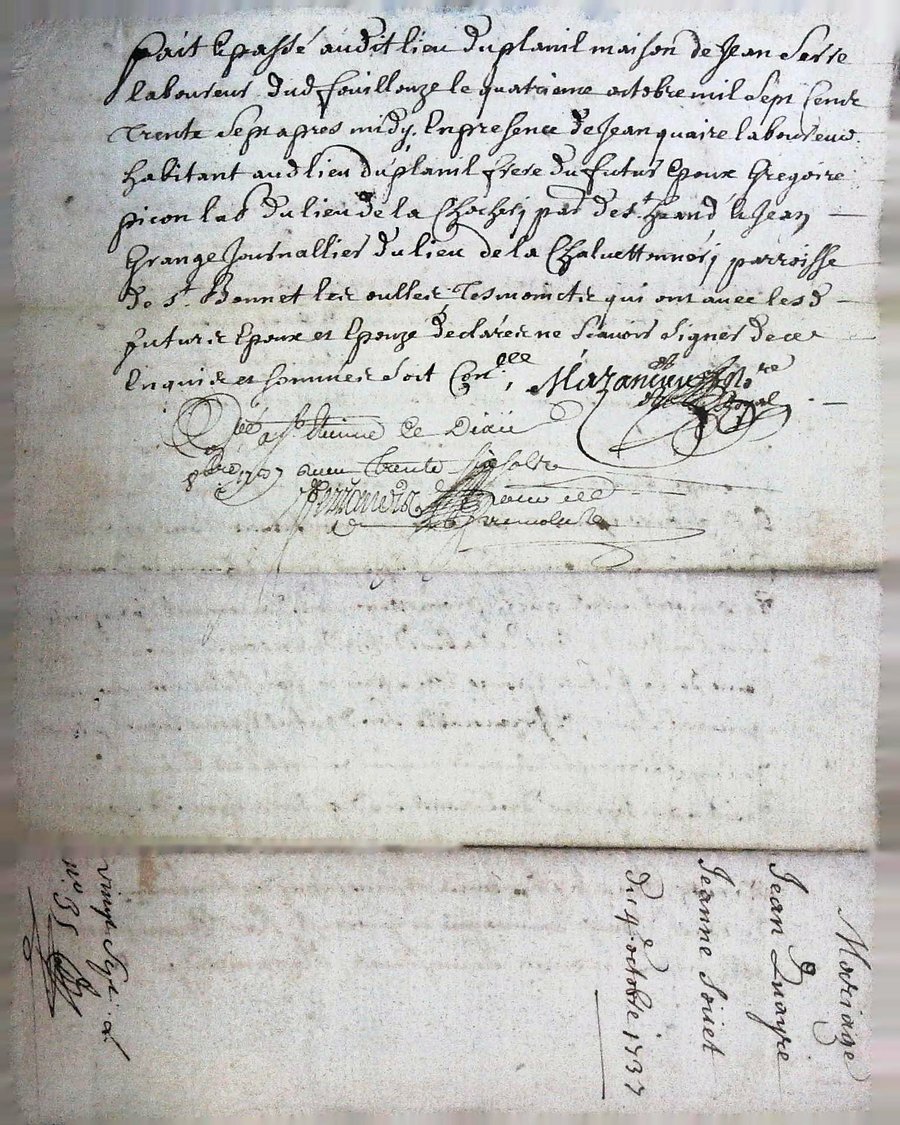 fait Et passé audit lieu du planil maison de Jean Serre
laboureur dud fouillouze le quatrieme octobre mil Sept Cent
Trente Sept apres midy, En presence de Jean quaire laboureur
habitant aud lieu du planil frere du futur Epoux Gregoire
picon lab du lieu de la par de st heand & Jean
Grange Journallier du lieu de la parroisse
de st Bonnet les oulles Tesmoinctz qui ont avec lesd
futurs Epoux et Epouze declarés ne Scavoir Signer de ce
Enquis et sommés Soit Con.lle, Mazandieu No.re
Royal
a St Etienne Le Dix
8bre 1737 Trente
Mariage
Jean Quayre
Jeanne Soviet
du 4 octobre 1737
vingt Sept
n° 35